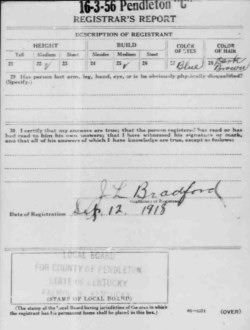 16-3-56 Pendleton "C"
REGISTRAR'S REPORT
DESCRIPTION OF REGISTRANT
HEIGHT BUILD COLOR OF EYES COLOR OF HAIR
Tall Medium Short Slender Medium Stout
21 22 ✓ 23 24 25 ✓ 26 27 Blue 28 Dark Brown
29 Has person lost arm, leg, hand, eye, or is he obviously physically disqualified?
(Specify.)
30. I certify that my answers are true; that the person registered has read or has
had read to him his own answers; that I have witnessed his signature or mark,
and that all of his answers of which I have knowledge are true, except as follows:
J L Bradford
Date of Registration Sep. 12, 1918
LOCAL BOARD
FOR COUNTY OF PENDLETON
STATE OF KENTUCKY
(STAMP OF LOCAL BOARD)
(The stamp of the Local Board having jurisdiction of the area in which
the registrant has his permanent home shall be placed in this box.)
(OVER)